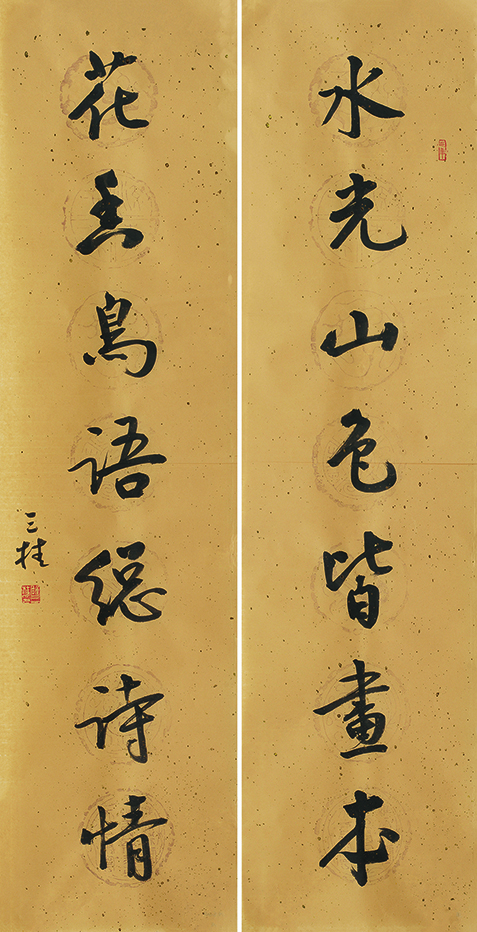 水光山色皆畫本
花香鳥语總诗情
三桂